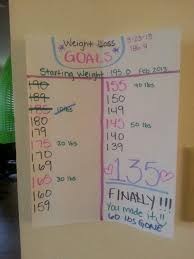 Weight Loss
GOALS
Starting Weight 195.0 Feb 2013
190
189
185 10 lbs
180
179
175 20 lbs
170
169
165 30 lbs
160
159
155 40 lbs
150
149
145 50 lbs
140
139
135
FINALLY!!!
You made it!!
60 lbs GONE